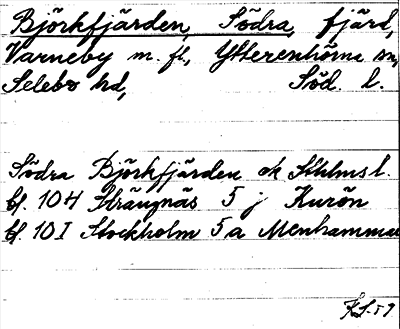 Björkfjärden, Södra, fjärd,
Varneby m. fl., Ytterenhörna sn,
Selebo hd, Söd. l.
Södra Björkfjärden ek Sthlms l.
bl. 104 Strängnäs 5 j Kurön
bl. 10I Stockholm 5a Menhammar
KS-59